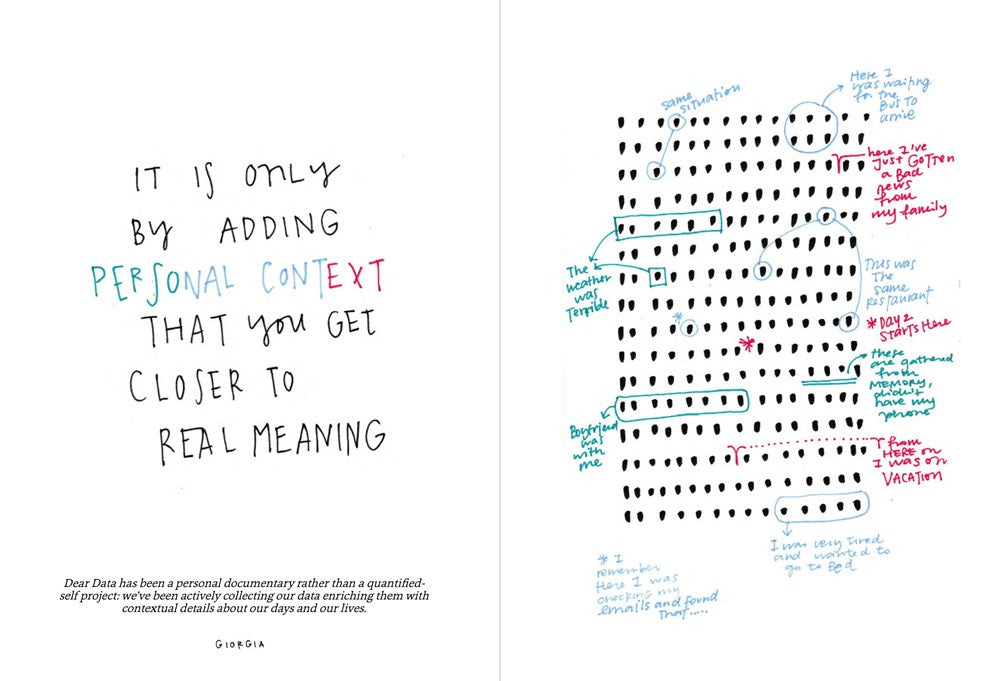 IT IS ONLY
BY ADDING
PERSONAL CONTEXT
THAT YOU GET
CLOSER TO
REAL MEANING
Dear Data has been a personal documentary rather than a quantified-
self project: we've been actively collecting our data enriching them with
contextual details about our days and our lives.
GIORGIA
same
situation
Here I
was waiting
for the
BUS TO
arrive
here I've
JUST GOTTEN
a Bad
news
from
my family
The
weather
was
Terrible
This was
The
same
restaurant
* DAY 2
STARTS Here
*
*
these
are gathered
from
MEMORY,
didn't
have my
phone
Boyfriend
was
with
me
from
HERE on
I was on
VACATION
I was very tired
and wanted to
go to Bed
* I
remember
Here I was
checking my
emails and found
That.....